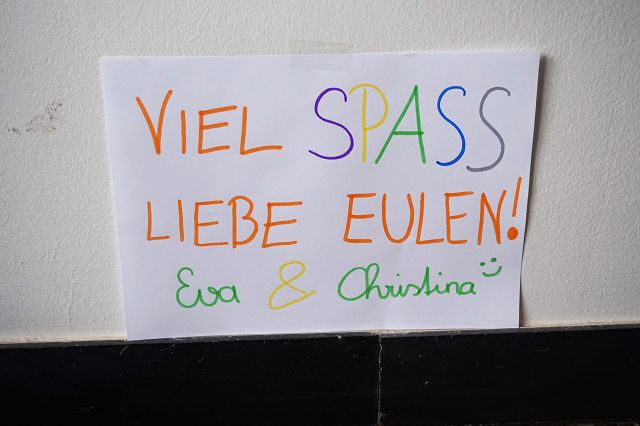 VIEL SPASS
LIEBE EULEN!
Eva & Christina